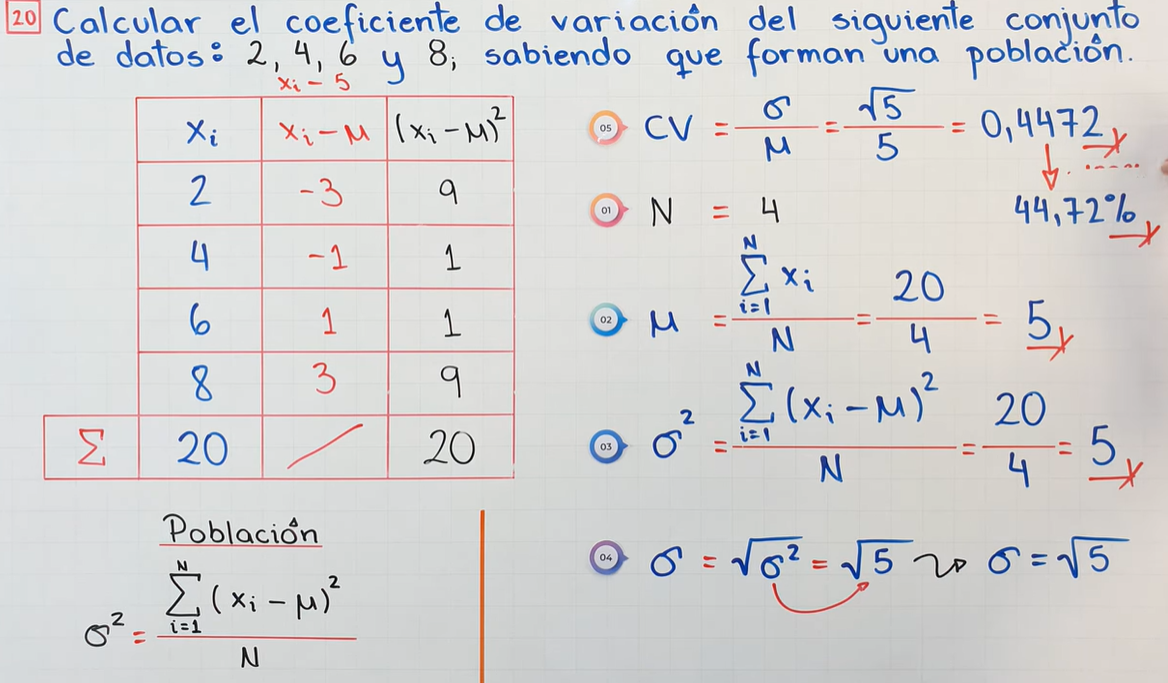 20 Calcular el coeficiente de variación del siguiente conjunto
de datos: 2, 4, 6 y 8; sabiendo que forman una población.
xᵢ - 5
xᵢ | xᵢ - μ | (xᵢ - μ)²
2 | -3 | 9
4 | -1 | 1
6 | 1 | 1
8 | 3 | 9
Σ | 20 | / | 20
Población
σ² = Σᵢ₌₁ᴺ (xᵢ - μ)² / N
05 CV = σ/μ = √5/5 = 0,4472
44,72%
01 N = 4
02 μ = Σᵢ₌₁ᴺ xᵢ / N = 20/4 = 5
03 σ² = Σᵢ₌₁ᴺ (xᵢ - μ)² / N = 20/4 = 5
04 σ = √σ² = √5 ⤳ σ = √5